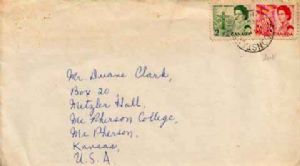 2 CANADA
CANADA
Mr. Duane Clark,
Box 20,
Metzler Hall,
Mc Pherson College,
Mc Pherson,
Kansas,
U.S.A.